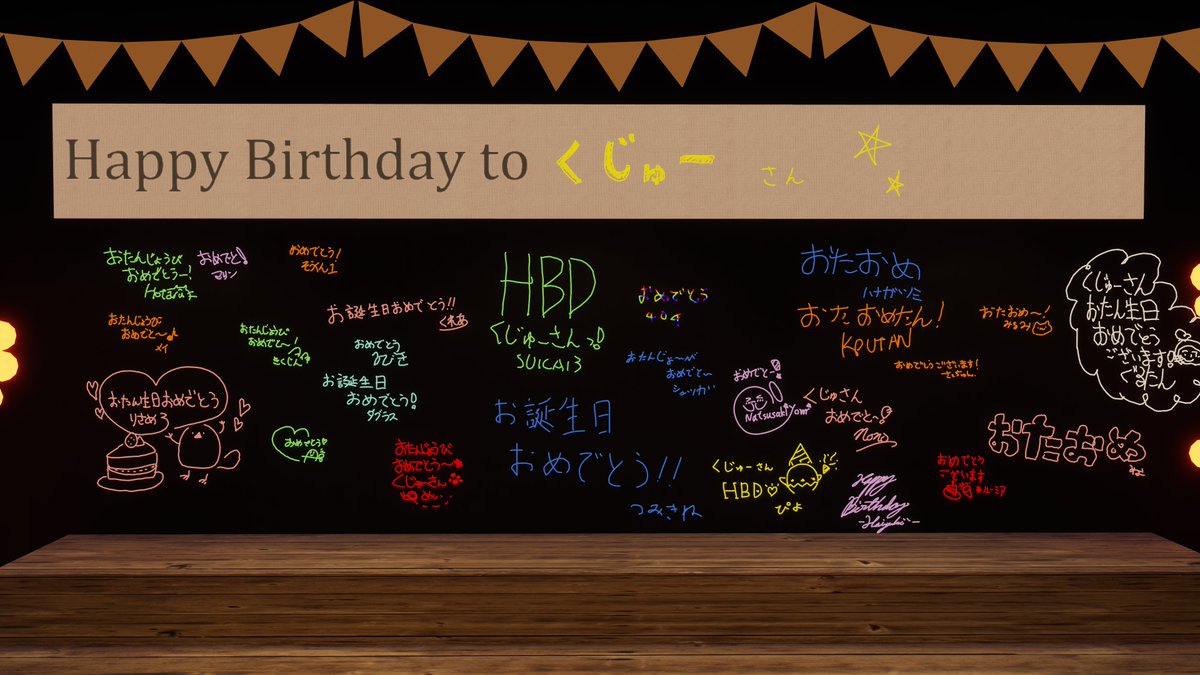 Happy Birthday to くじゅー さん
おたんじょうび
おめでとうー!
Hotaru
おめでと!
マリン
おめでとう!
そうくん1
おたんじょうび
おめでと〜♪
メイ
おたんじょうび
おめでと〜!
きくじん
お誕生日おめでとう!!
くれあ
おめでとう
ひびき
お誕生日
おめでとう!
ダグラス
おたん生日おめでとう
りさめろ
おめでとう
おたんじょうび
おめでとう〜
くじゅーさん
HBD
くじゅーさんっ!
SUICA13
おめでとう
404
おたんじょ〜び
おめでと〜
お誕生日
おめでとう!!
つみきれ
おたおめ
ハナガツミ
おたおめたん!
KOUTAN
おめでとうございます!
おたおめ〜!
みるみ
おめでと
Natsusakiyomi
くじゅさん
おめでと〜
nono
くじゅーさん
HBD♡
ぴよ
Happy
Birthday
-Haiyuki-
おめでとう
ございます
おたおめ
ね
くじゅーさん
おたん生日
おめでとう
ございます!
ぐるたん